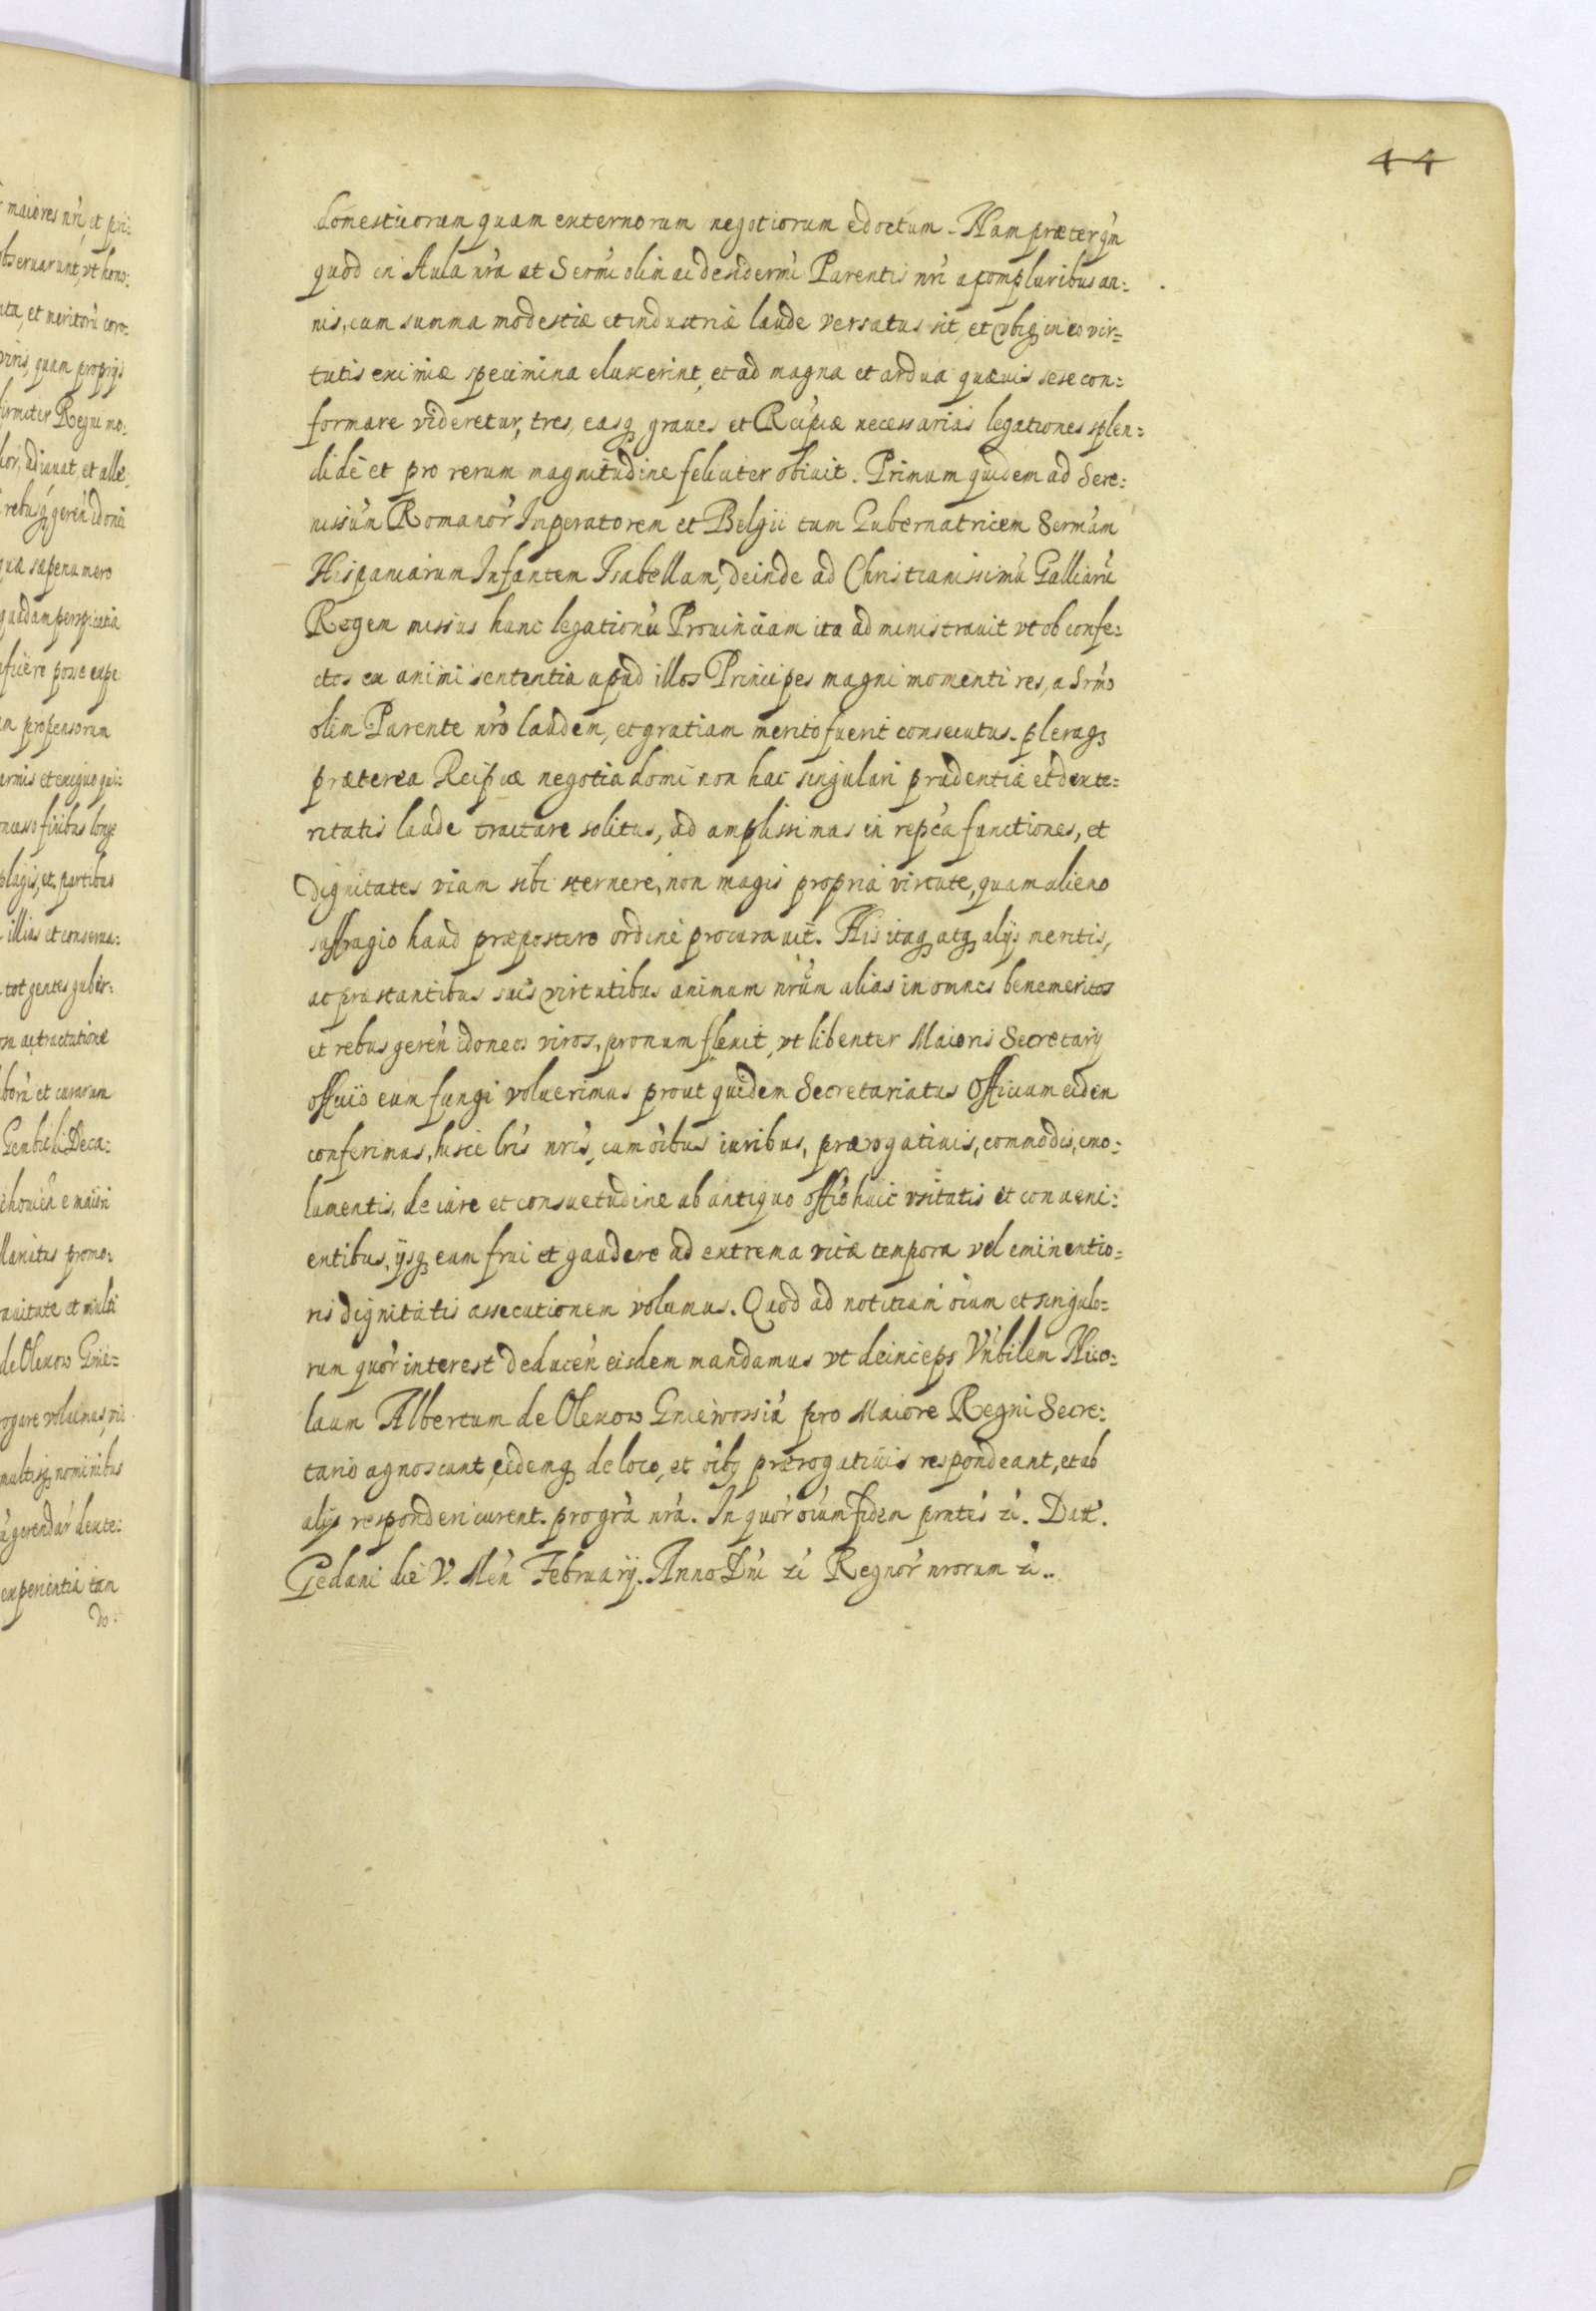 44
domesticorum quam externorum negotiorum edoctum. Nam præterqm̃
quod in Aula nrã at Sermi olim ac desidermi Parentis nri a compluribus an:
nis, cum summa modestiæ et industriæ laude versatus sit, et vbiq in eo vir=
tutis eximiæ specimina eluxerint, et ad magna et ardua quævis sese con:
formare videretur, tres, easq graues et Reipcæ necessarias legationes splen=
didè et pro rerum magnitudine feliciter obiuit. Primum quidem ad Sere:
nissum Romanor Imperatorem et Belgii tum Gubernatricem Sermam
Hispaniarum Infantem Isabellam, deinde ad Christianissimũ Galliarũ
Regem missus hanc legationũ Prouinciam ita administrauit vt ob confe:
ctos ex animi sententia apud illos Principes magni momenti res, a Srmo
olim Parente nro laudem, et gratiam merito fuerit consecutus. pleraq
præterea Reipcæ negotia domi non hac singulari prudentiæ et dexte:
ritatis laude tractare solitus, ad amplissimas in repca functiones, et
dignitates viam sibi sternere, non magis propria virtute, quam alieno
suffragio haud præpostero ordine procurauit. His itaq atq alijs meritis,
ac præstantibus suis virtutibus animum nrum alias in omnes benemeritos
et rebus geren idoneos viros, pronum flexit, vt libenter Maioris Secretarij
officio eum fungi voluerimus prout quidem Secretariatus Officium eidem
conferimus, hisce lris nris, cum oibus iuribus, prærogatiuis, commodis, emo:
lumentis, de iure et consuetudine ab antiquo offio huic vsitatis et conueni:
entibus, ijsq eum frui et gaudere ad extrema vitæ tempora vel eminentio=
ris dignitatis assecutionem volumus. Quod ad notitiam oium et singulo=
rum quor interest deducen eisdem mandamus vt deinceps Vnbilem Nico:
laum Albertum de Olexow Gniewossiũ pro Maiore Regni Secre:
tario agnoscant, eidemq de loco, et oibq prærogatiuis respondeant, et ab
alijs responderi curent. pro gra nra. In quor oium fidem pntes zc. Dat.
Gedani die V. Men Februarij. Anno Dni zc Regnor nrorum zc..